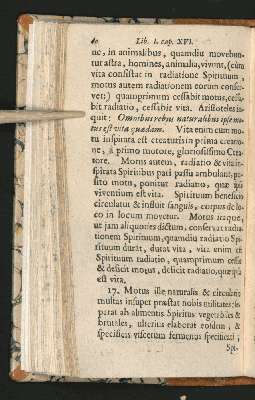 40 Lib. I. cap. XVI.
ne, in animalibus, quamdiu movebun-
tur astra, homines, animalia, vivunt, (cùm
vita consistat in radiatione Spirituum,
motus autem radiationem eorum conser-
vet:) quamprimum cessabit motus, cessa-
bit radiatio, cessabit vita. Aristoteles in-
quit: Omnibus rebus naturalibus ipse mo-
tus est vita quædam. Vita enim cum mo-
tu inspirata est creaturis in prima creatio-
ne, à primo motore, gloriosissimo Crea-
tore. Motus autem, radiatio & vita in-
spirata Spiritibus pari passu ambulant, po-
sito motu, ponitur radiatio, quæ ipsa
viventium est vita. Spirituum beneficio
circulatur & influit sanguis, corpus de lo-
co in locum movetur. Motus itaque,
ut jam aliquoties dictum, conservat radia-
tionem Spirituum, quamdiu radiatio Spi-
rituum durat, durat vita, vita enim est
Spirituum radiatio, quamprimum cessat
& deficit motus, deficit radiatio, quæ ipsa
est vita.
17. Motus ille naturalis & circularis
multas insuper præstat nobis utilitates; se-
parat ab alimentis Spiritus vegetabiles &
brutales, ulterius elaborat eosdem, &
specificis viscerum fermentis specificat;
Spi-